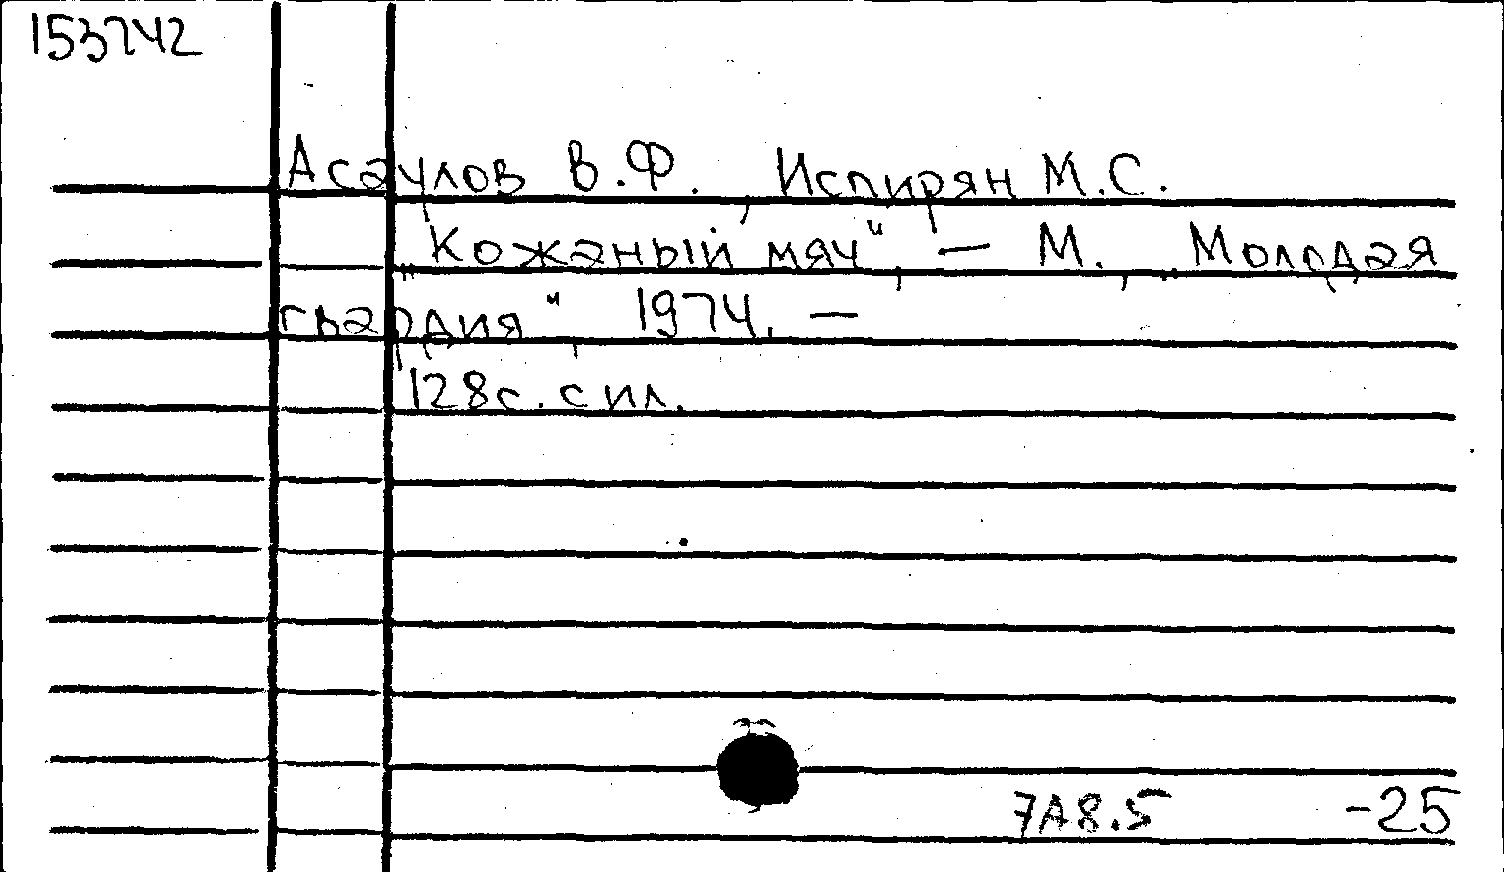 153742
Асаулов В.Ф., Испирян М.С.
„Кожаный мяч", — М., „Молодая
гвардия", 1974. —
128с. с ил.
7А8.5 -25